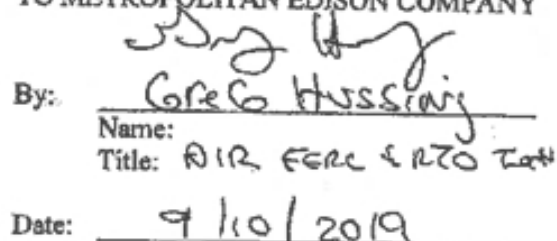 TO METROPOLITAN EDISON COMPANY
By: GreG Hussing
Name:
Title: DIR FERC & RTO
Date: 9/10/2019